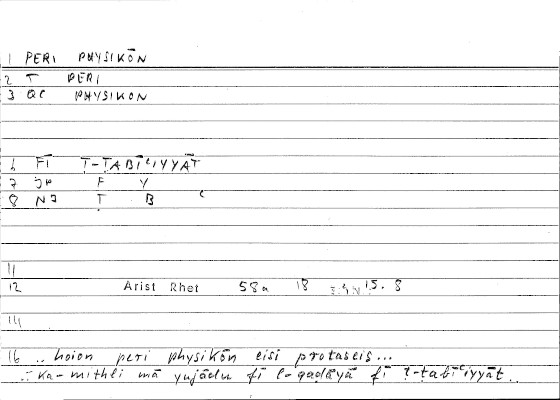 1 PERI PHYSIKŌN
2 T PERI
3 QC PHYSIKON
6 FĪ Ṭ-ṬABĪʿIYYĀT
7 JR F Y
8 NJ Ṭ B ʿ
11
12 Arist Rhet 58a 18 15. 8
14
16 ..hoion peri physikōn eisi protaseis...
ka-mithli mā yujādu fī l-qaḍāyā fī ṭ-ṭabīʿiyyāt..